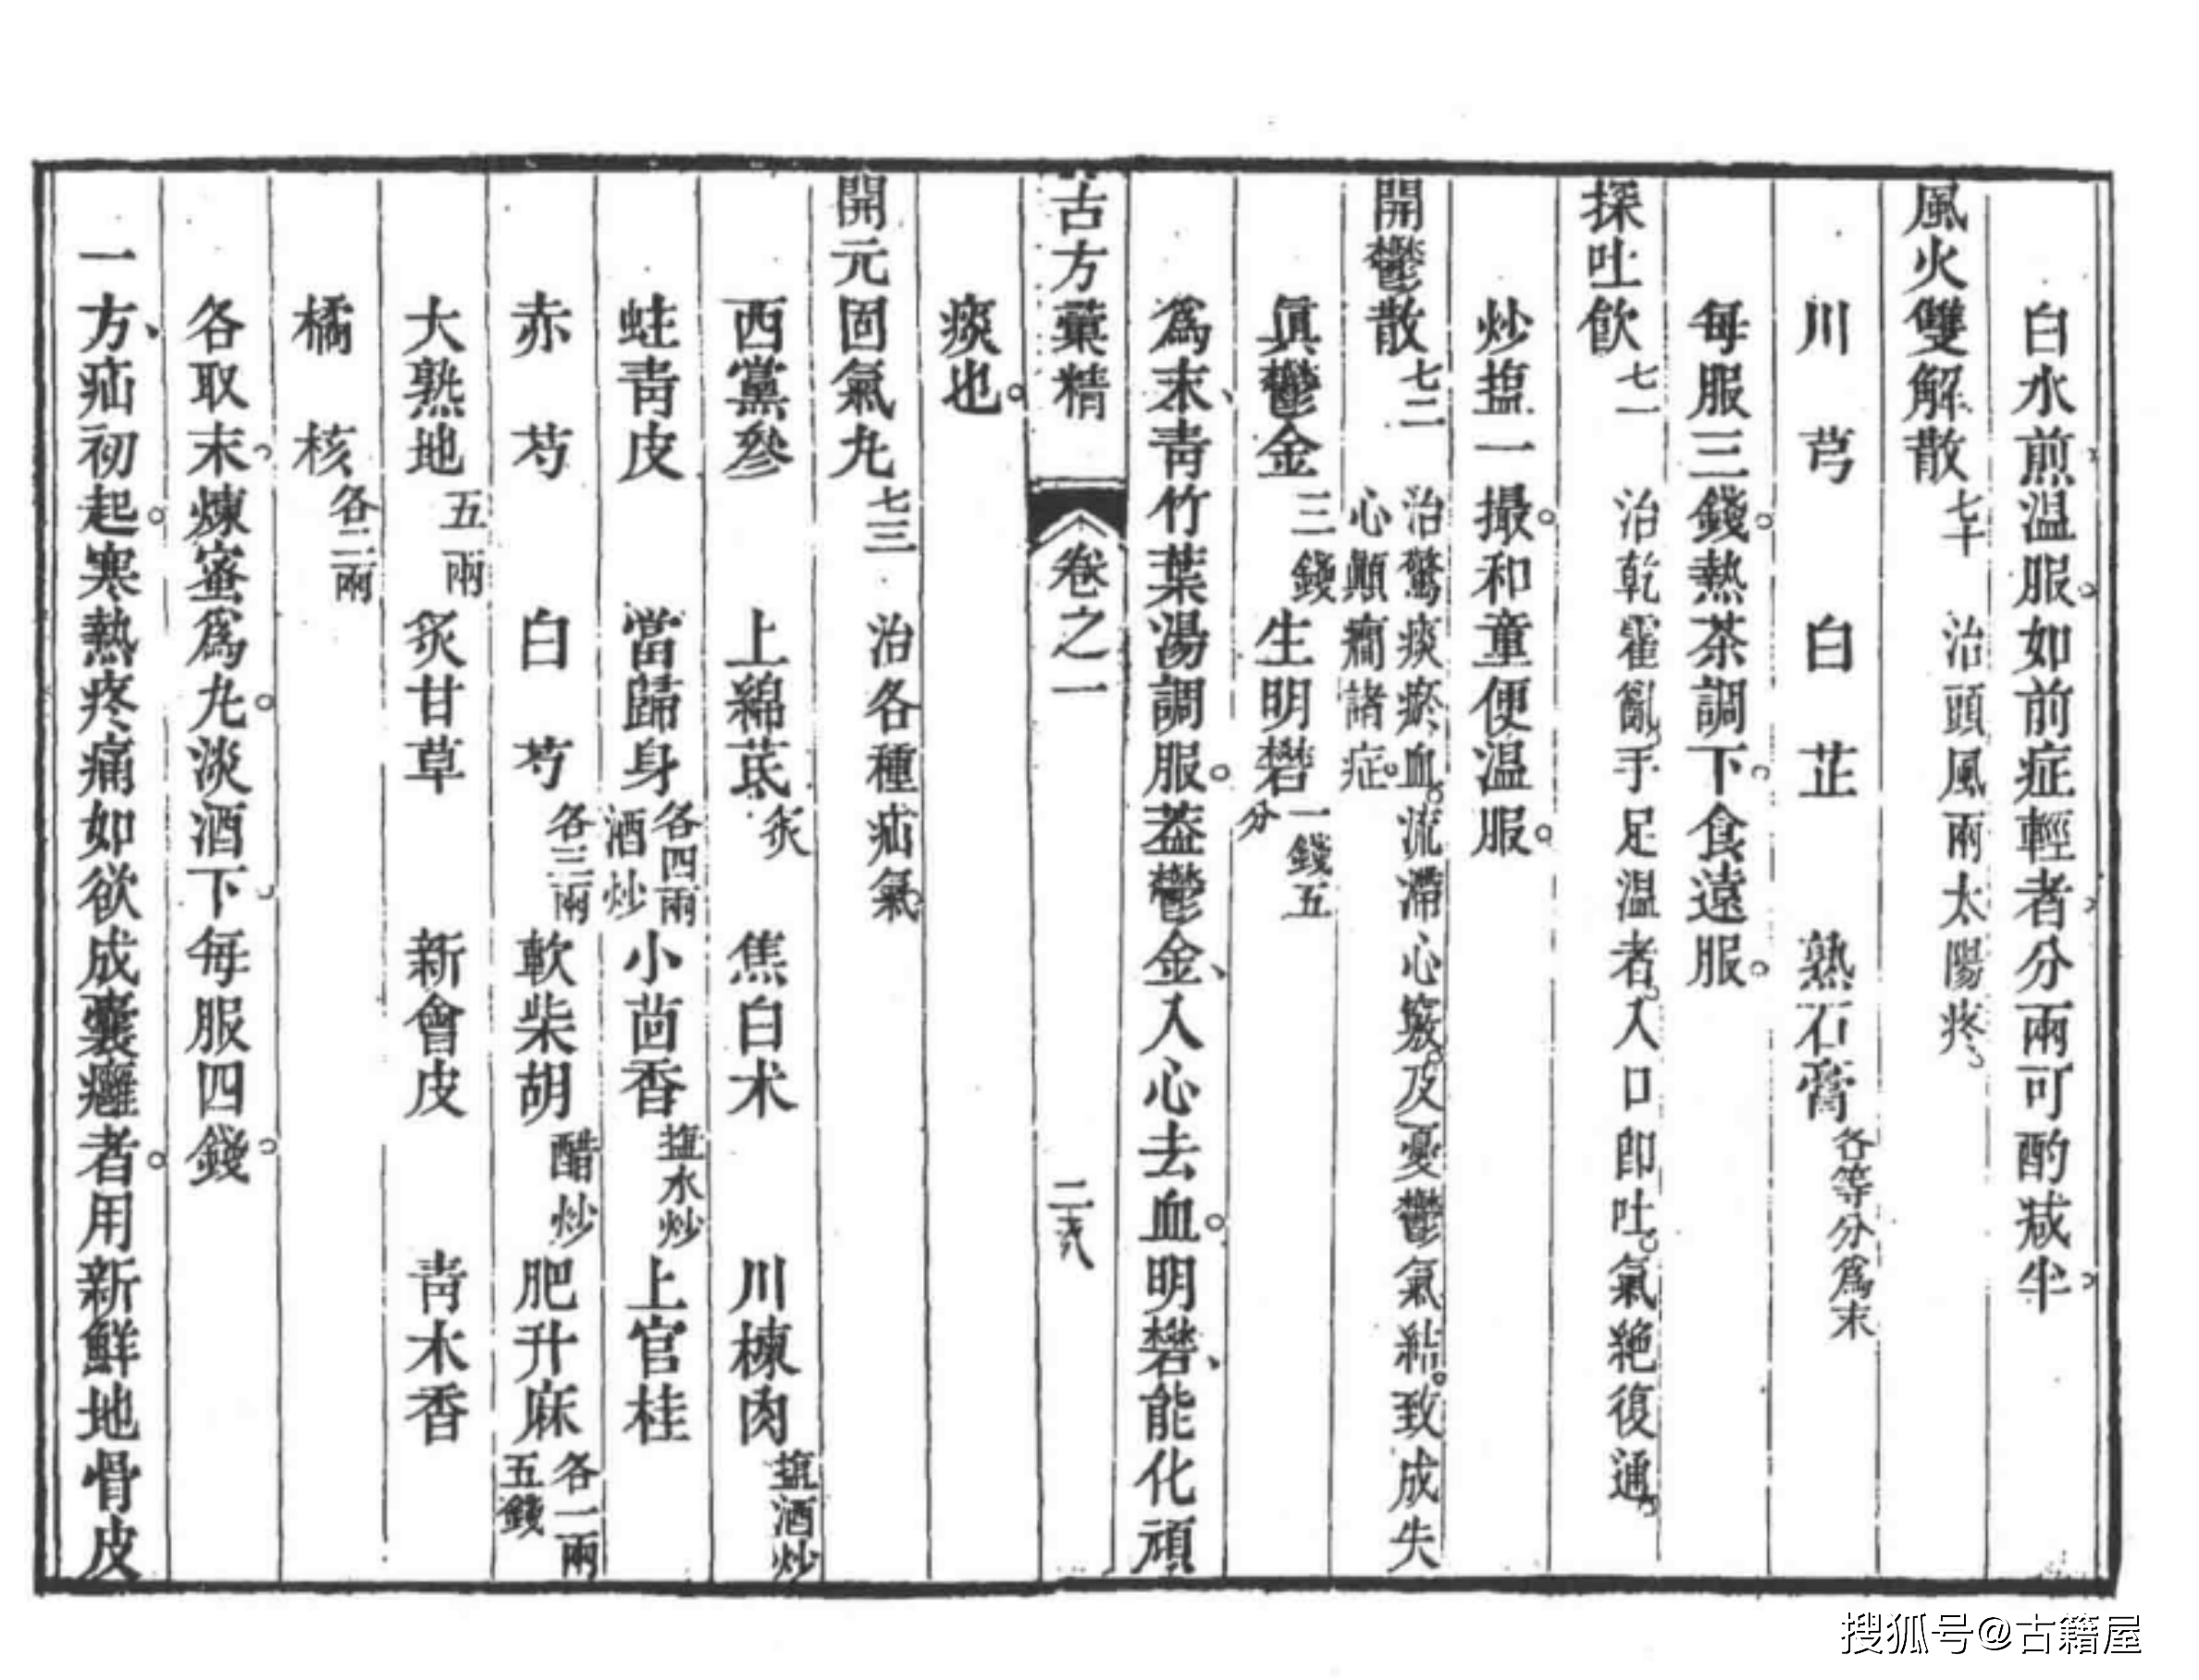 白水煎温服。如前症輕者。分兩可酌减半。
風火雙解散 七十 治頭風兩太陽疼。
川芎 白芷 熟石膏 各等分爲末
每服三錢。熱茶調下。食遠服。
探吐飲 七一 治乾霍亂。手足温者。入口即吐。氣絶復通。
炒塩一撮。和童便温服。
開鬱散 七二 治驚痰瘀血。流滯心竅。及憂鬱氣結。致成失心顛癇諸症。
眞鬱金 三錢 生明礬 一錢五分
爲末、青竹葉湯調服。葢鬱金、入心去血。明礬、能化頑
古方彙精 卷之一 二十八
痰也。
開元固氣丸 七三 治各種疝氣。
西黨參 上綿茋 炙 焦白术 川楝肉 塩酒炒
蛀青皮 當歸身 各四兩酒炒 小茴香 塩水炒 上官桂
赤芍 白芍 各三兩 軟柴胡 醋炒 肥升麻 各一兩五錢
大熟地 五兩 炙甘草 新會皮 青木香
橘核 各二兩
各取末。煉蜜爲丸。淡酒下。每服四錢。
一方、疝初起。寒熱疼痛如欲成囊癰者。用新鮮地骨皮
搜狐号@古籍屋